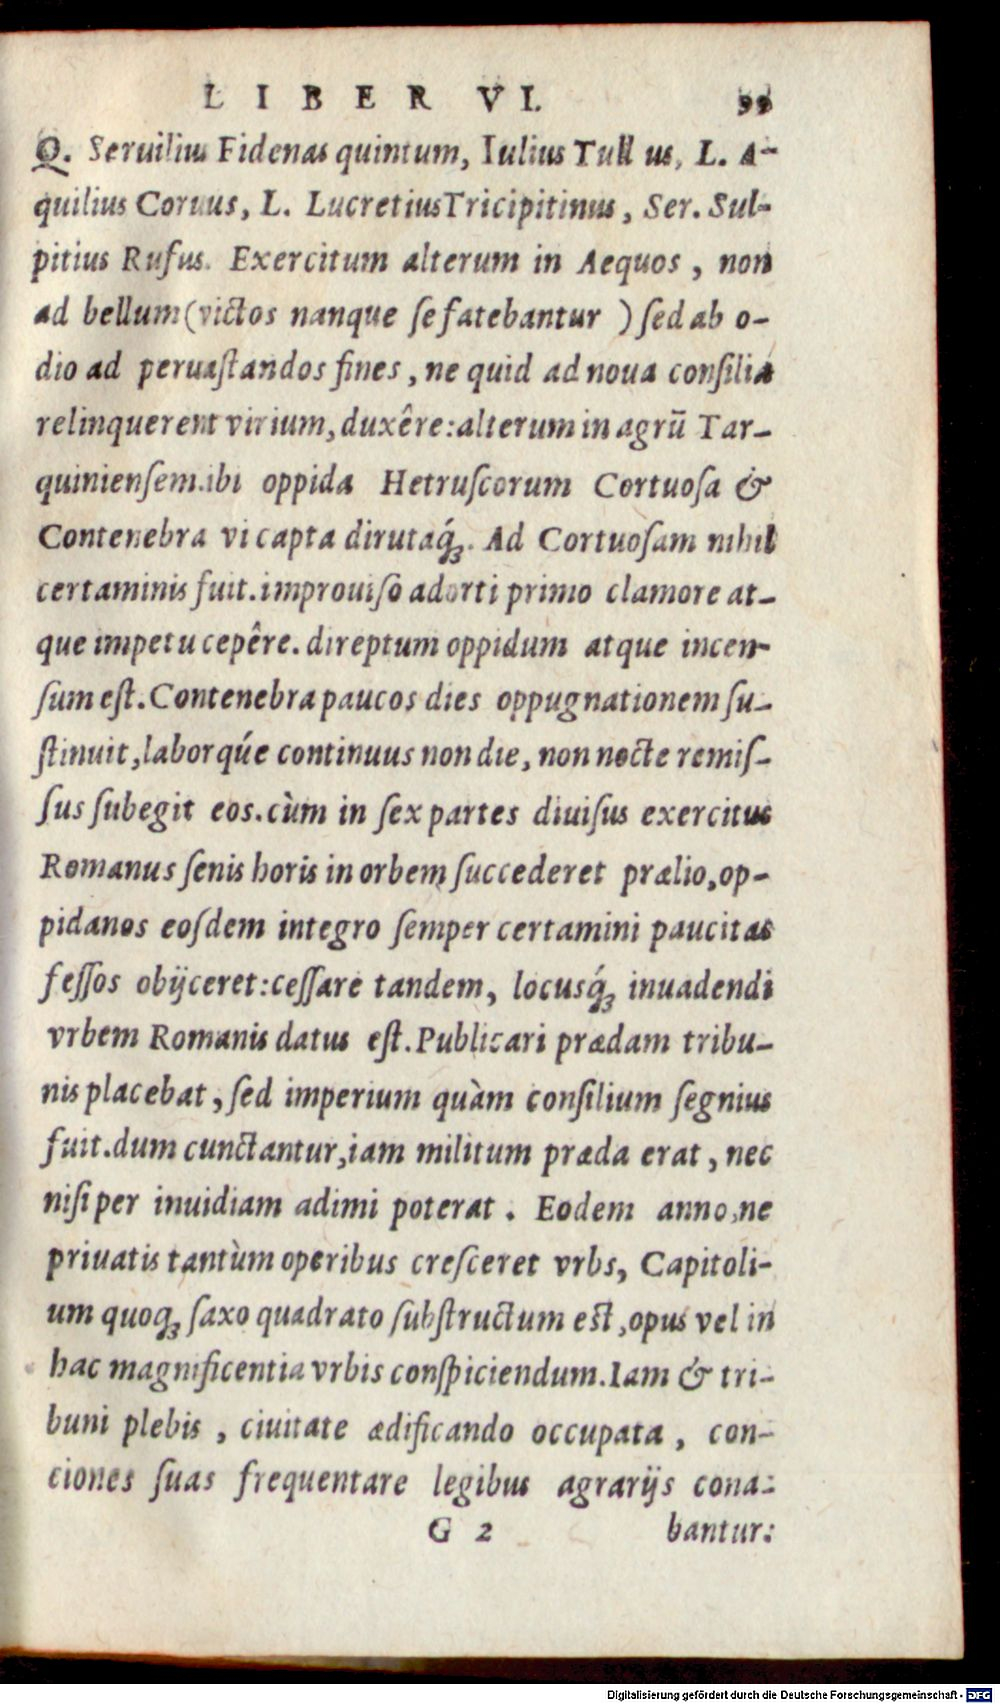 LIBER VI. 99
Q. Seruilius Fidenas quintum, Iulius Tullus, L. A-
quilius Coruus, L. Lucretius Tricipitinus, Ser. Sul-
pitius Rufus. Exercitum alterum in Aequos, non
ad bellum (victos nanque se fatebantur) sed ab o-
dio ad peruastandos fines, ne quid ad noua consilia
relinquerent virium, duxêre: alterum in agrū Tar-
quiniensem. ibi oppida Hetruscorum Cortuosa &
Contenebra vi capta dirutaq́ꝫ. Ad Cortuosam nihil
certaminis fuit. improuisò adorti primo clamore at-
que impetu cepêre. direptum oppidum atque incen-
sum est. Contenebra paucos dies oppugnationem su-
stinuit, laborq́ue continuus non die, non nocte remis-
sus subegit eos. cùm in sex partes diuisus exercitus
Romanus senis horis in orbem succederet prælio, op-
pidanos eosdem integro semper certamini paucitas
fessos obijceret: cessare tandem, locusq́ꝫ inuadendi
vrbem Romanis datus est. Publicari prædam tribu-
nis placebat, sed imperium quàm consilium segnius
fuit. dum cunctantur, iam militum præda erat, nec
nisi per inuidiam adimi poterat. Eodem anno, ne
priuatis tantùm operibus cresceret vrbs, Capitoli-
um quoqꝫ saxo quadrato substructum est, opus vel in
hac magnificentia vrbis conspiciendum. Iam & tri-
buni plebis, ciuitate ædificando occupata, con-
ciones suas frequentare legibus agrarijs cona-
G 2 bantur:
Digitalisierung gefördert durch die Deutsche Forschungsgemeinschaft - DFG